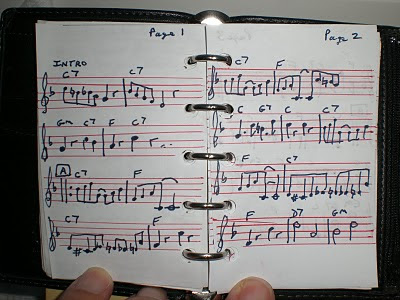 Page 1
INTRO
C7 C7
Gm C7 F C7
A C7 F
C7 F
Page 2
C7 F
C G7 C C7
F C7
F D7 Gm